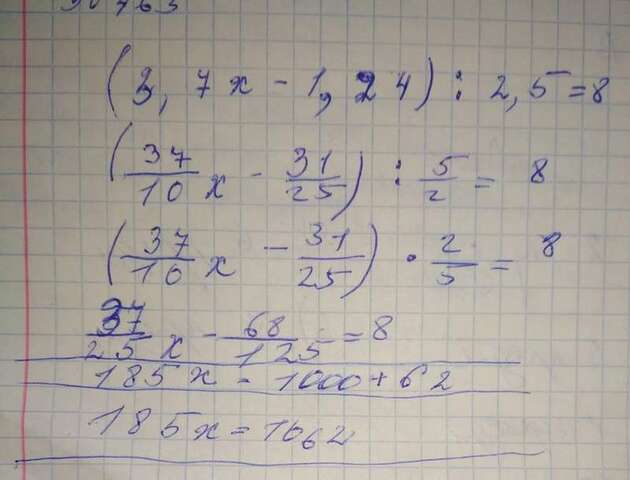 (3,7x - 1,24) : 2,5 = 8
(37/10 x - 31/25) : 5/2 = 8
(37/10 x - 31/25) · 2/5 = 8
37/25 x - 68/125 = 8
185x - 1000 + 62
185x = 1062